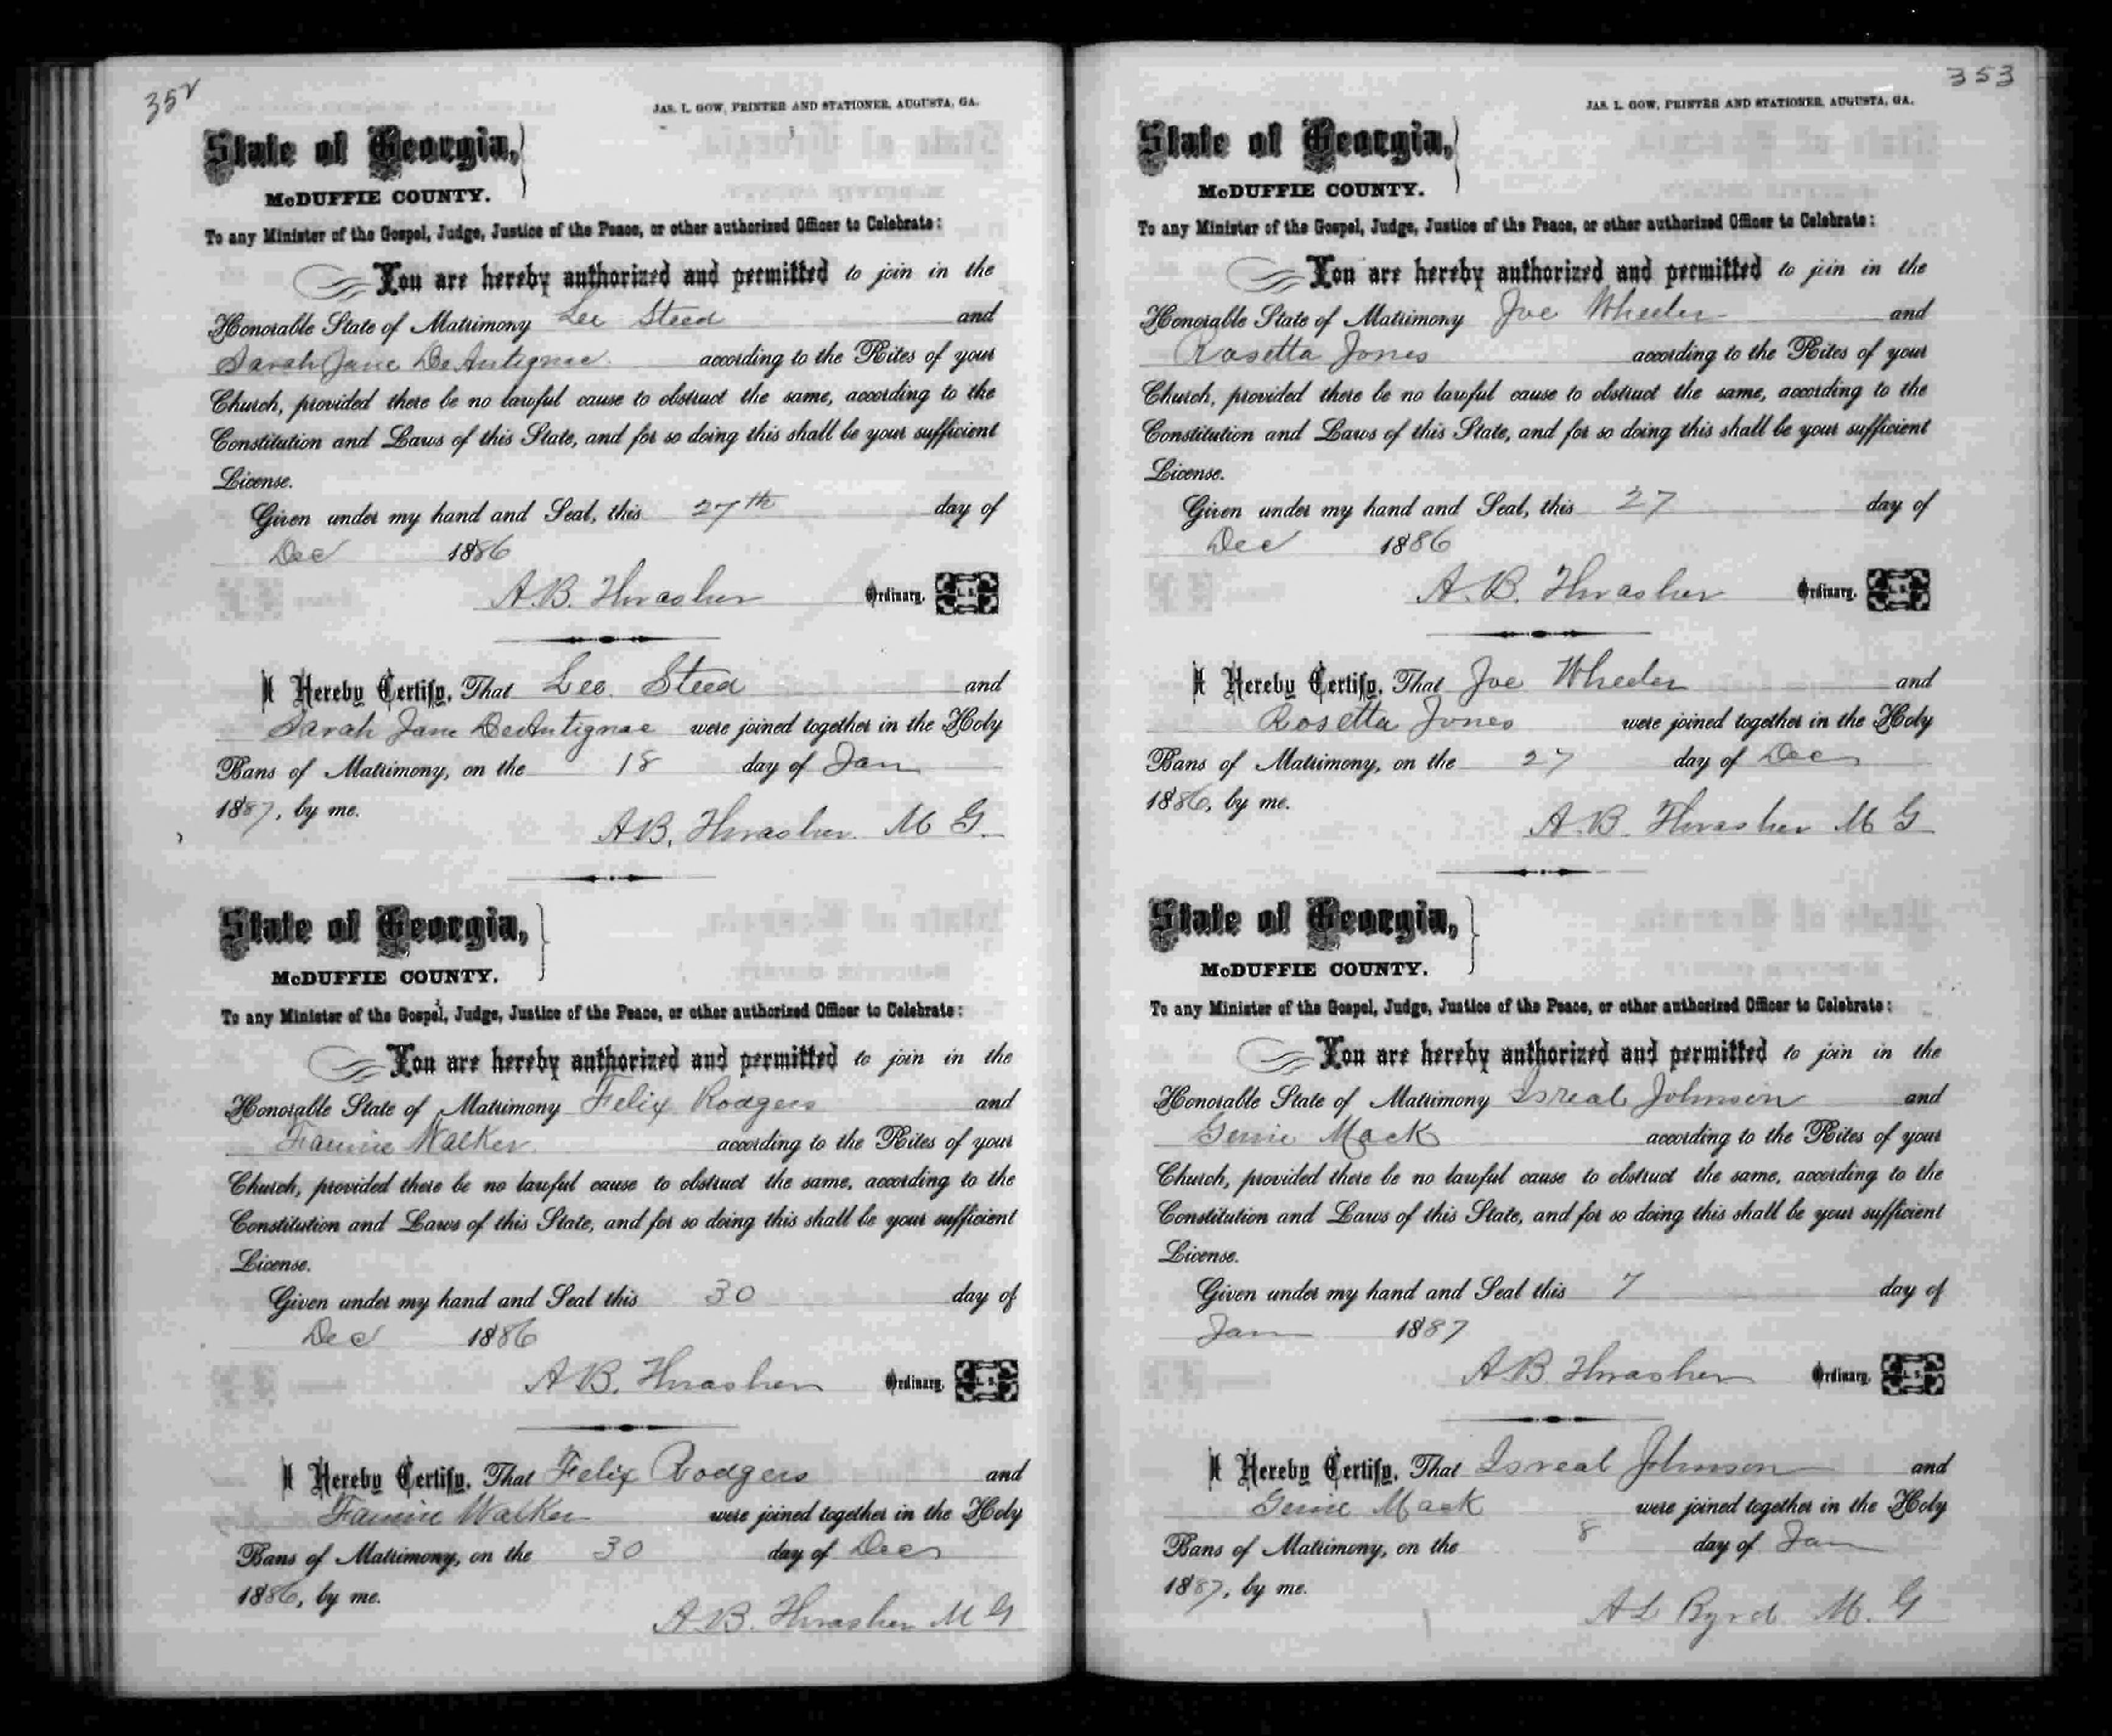 352
JAS. L. GOW, PRINTER AND STATIONER, AUGUSTA, GA.
State of Georgia,
McDUFFIE COUNTY.
To any Minister of the Gospel, Judge, Justice of the Peace, or other authorized Officer to Celebrate:
You are hereby authorized and permitted to join in the
Honorable State of Matrimony Lee Steed and
Sarah Jane DeAntignac according to the Rites of your
Church, provided there be no lawful cause to obstruct the same, according to the
Constitution and Laws of this State, and for so doing this shall be your sufficient
License.
Given under my hand and Seal, this 27th day of
Dec 1886
A. B. Thrasher Ordinary. L. S.
I Hereby Certify, That Lee Steed and
Sarah Jane DeAntignac were joined together in the Holy
Bans of Matrimony, on the 18 day of Jan
1887, by me.
A B. Thrasher M G.
State of Georgia,
McDUFFIE COUNTY.
To any Minister of the Gospel, Judge, Justice of the Peace, or other authorized Officer to Celebrate:
You are hereby authorized and permitted to join in the
Honorable State of Matrimony Felix Rodgers and
Fannie Walker according to the Rites of your
Church, provided there be no lawful cause to obstruct the same, according to the
Constitution and Laws of this State, and for so doing this shall be your sufficient
License.
Given under my hand and Seal this 30 day of
Dec 1886
A B. Thrasher Ordinary. L. S.
I Hereby Certify, That Felix Rodgers and
Fannie Walker were joined together in the Holy
Bans of Matrimony, on the 30 day of Dec
1886, by me.
A. B. Thrasher M G
353
JAS. L. GOW, PRINTER AND STATIONER, AUGUSTA, GA.
State of Georgia,
McDUFFIE COUNTY.
To any Minister of the Gospel, Judge, Justice of the Peace, or other authorized Officer to Celebrate:
You are hereby authorized and permitted to join in the
Honorable State of Matrimony Joe Wheeler and
Rosetta Jones according to the Rites of your
Church, provided there be no lawful cause to obstruct the same, according to the
Constitution and Laws of this State, and for so doing this shall be your sufficient
License.
Given under my hand and Seal, this 27 day of
Dec 1886
A. B. Thrasher Ordinary. L. S.
I Hereby Certify, That Joe Wheeler and
Rosetta Jones were joined together in the Holy
Bans of Matrimony, on the 27 day of Dec
1886, by me.
A. B. Thrasher M G
State of Georgia,
McDUFFIE COUNTY.
To any Minister of the Gospel, Judge, Justice of the Peace, or other authorized Officer to Celebrate:
You are hereby authorized and permitted to join in the
Honorable State of Matrimony Isreal Johnson and
Genie Mack according to the Rites of your
Church, provided there be no lawful cause to obstruct the same, according to the
Constitution and Laws of this State, and for so doing this shall be your sufficient
License.
Given under my hand and Seal this 7 day of
Jan 1887
A. B. Thrasher Ordinary. L. S.
I Hereby Certify, That Isreal Johnson and
Genie Mack were joined together in the Holy
Bans of Matrimony, on the 8 day of Jan
1887, by me.
A L Byrd M. G